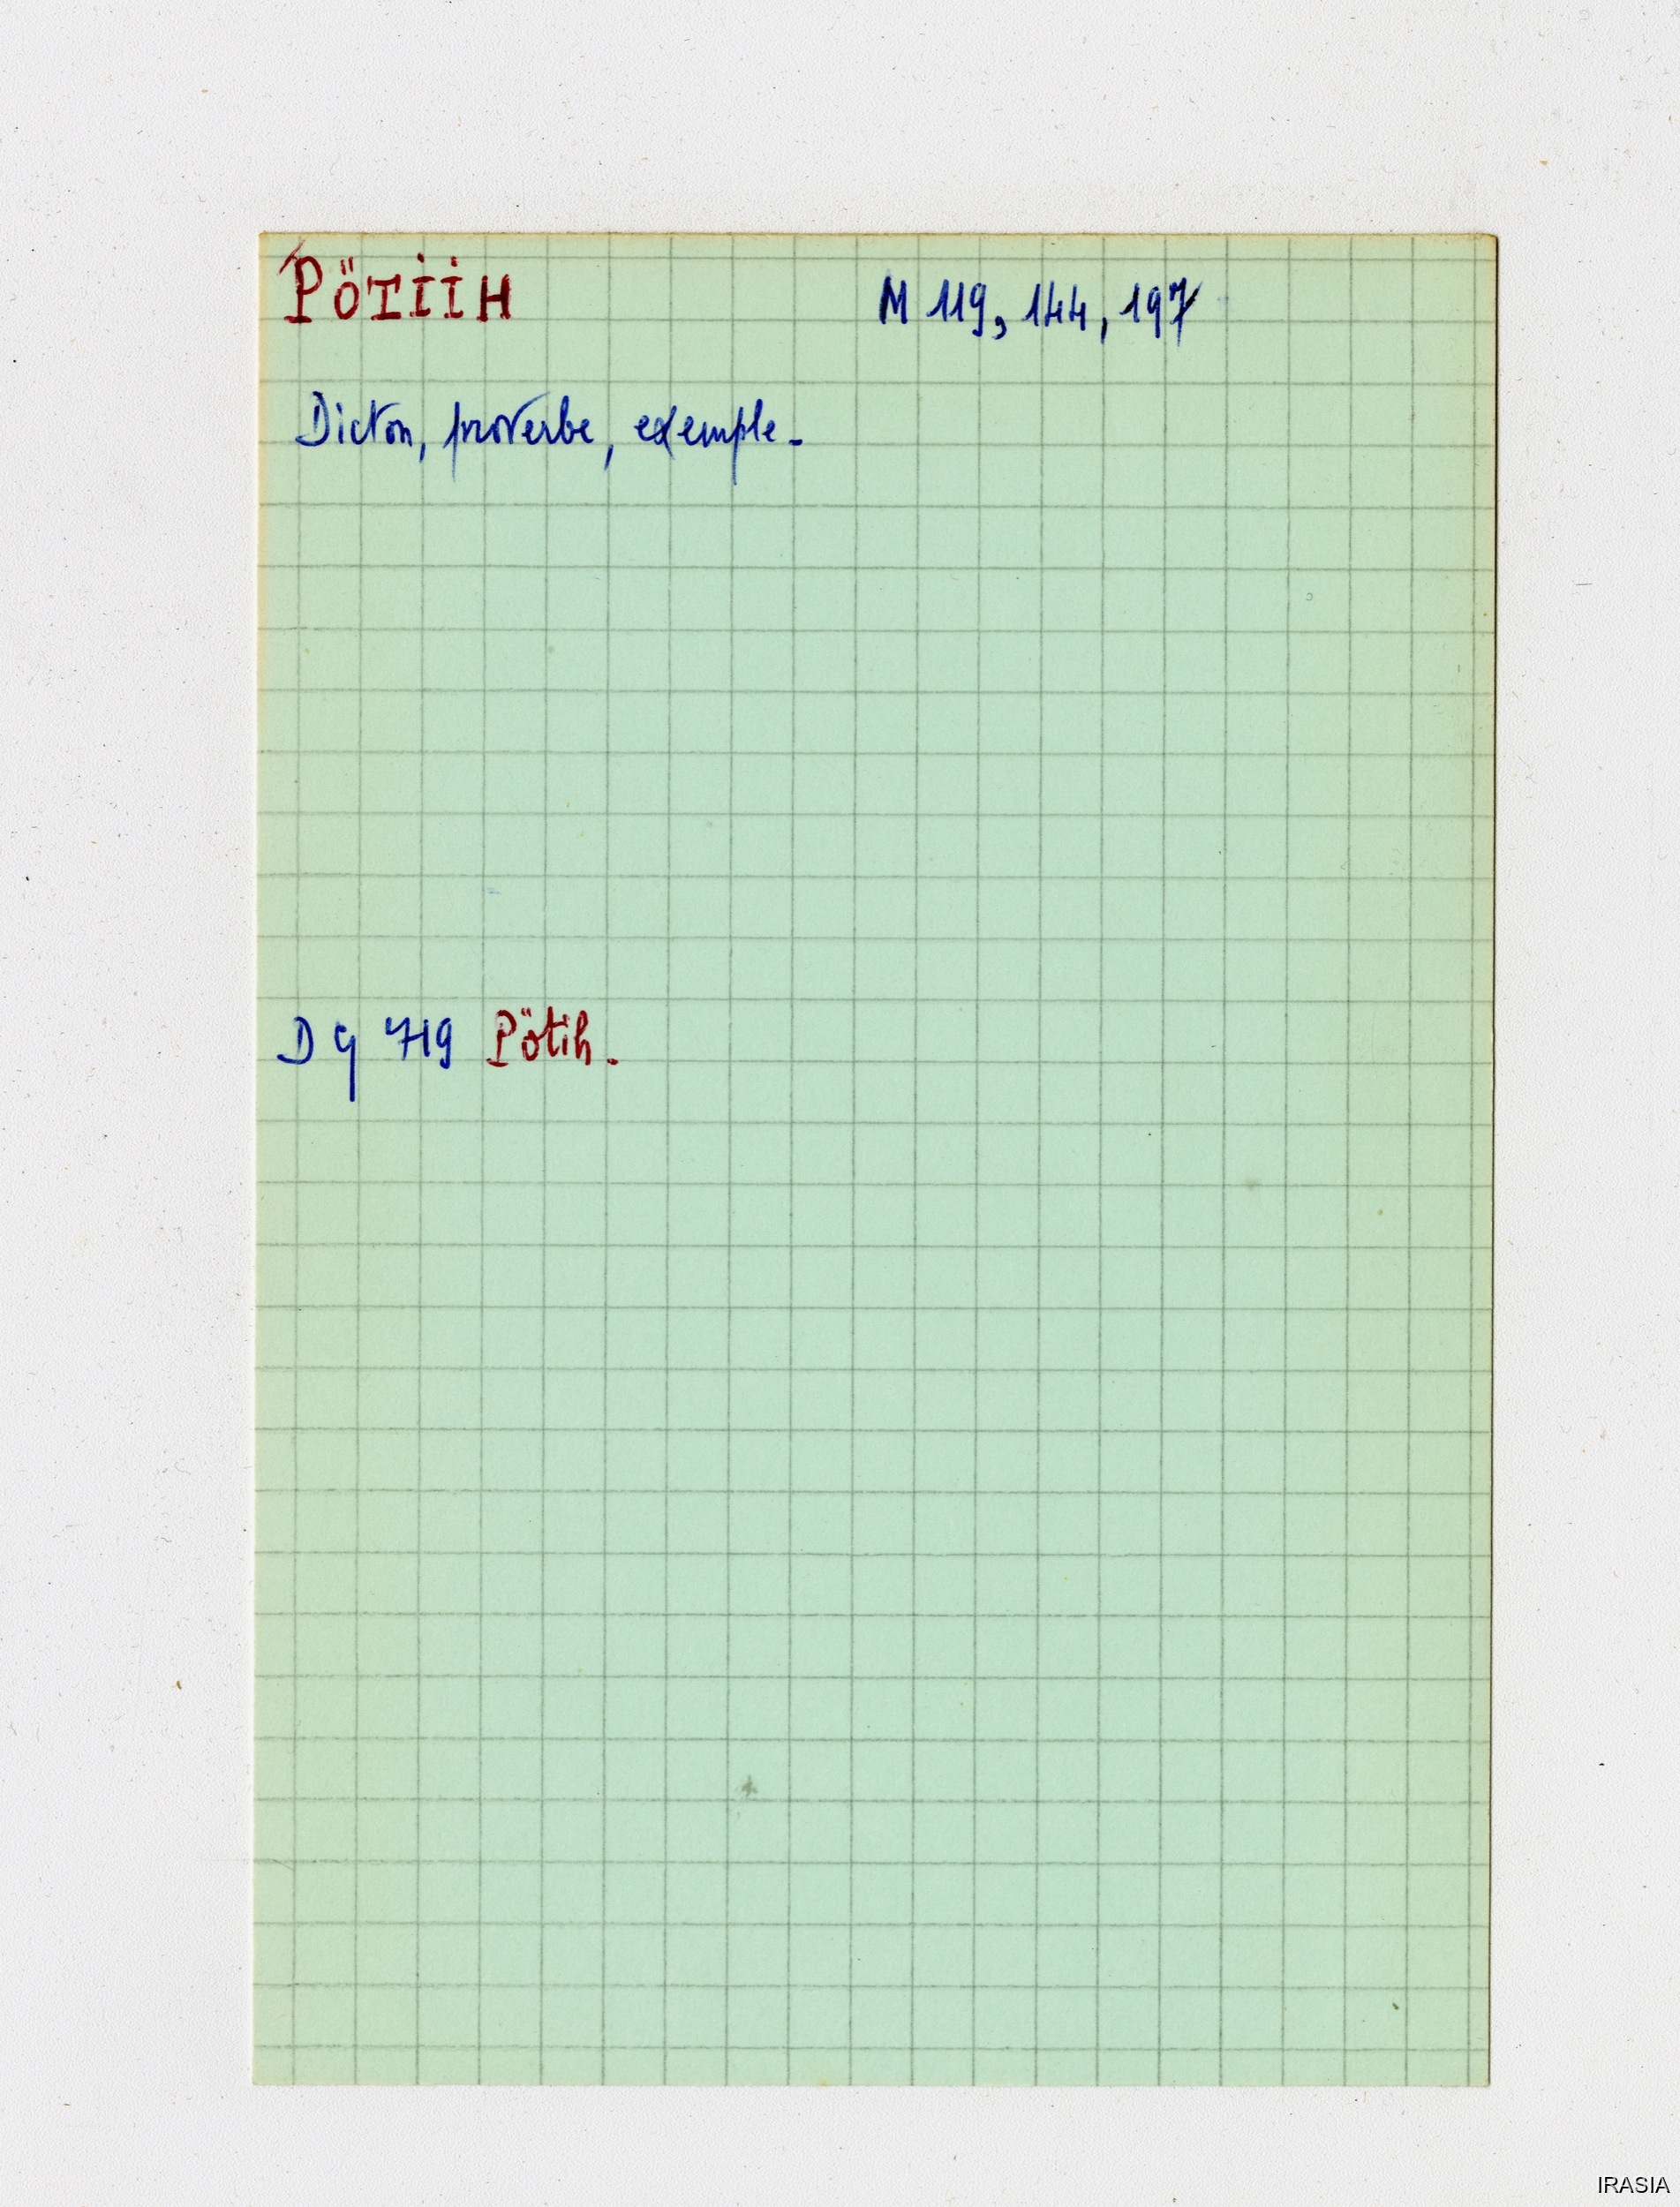 PÖTİİH M 119, 144, 197
Dicton, proverbe, exemple.
DG 719 Pötih.
IRASIA